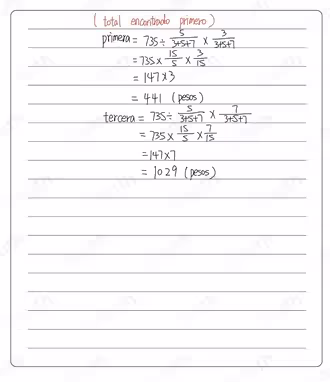 (total encontrado primero)
primera = 735 ÷ 5/(3+5+7) × 3/(3+5+7)
= 735 × 15/5 × 3/15
= 147 × 3
= 441 (pesos)
tercera = 735 ÷ 5/(3+5+7) × 7/(3+5+7)
= 735 × 15/5 × 7/15
= 147 × 7
= 1029 (pesos)